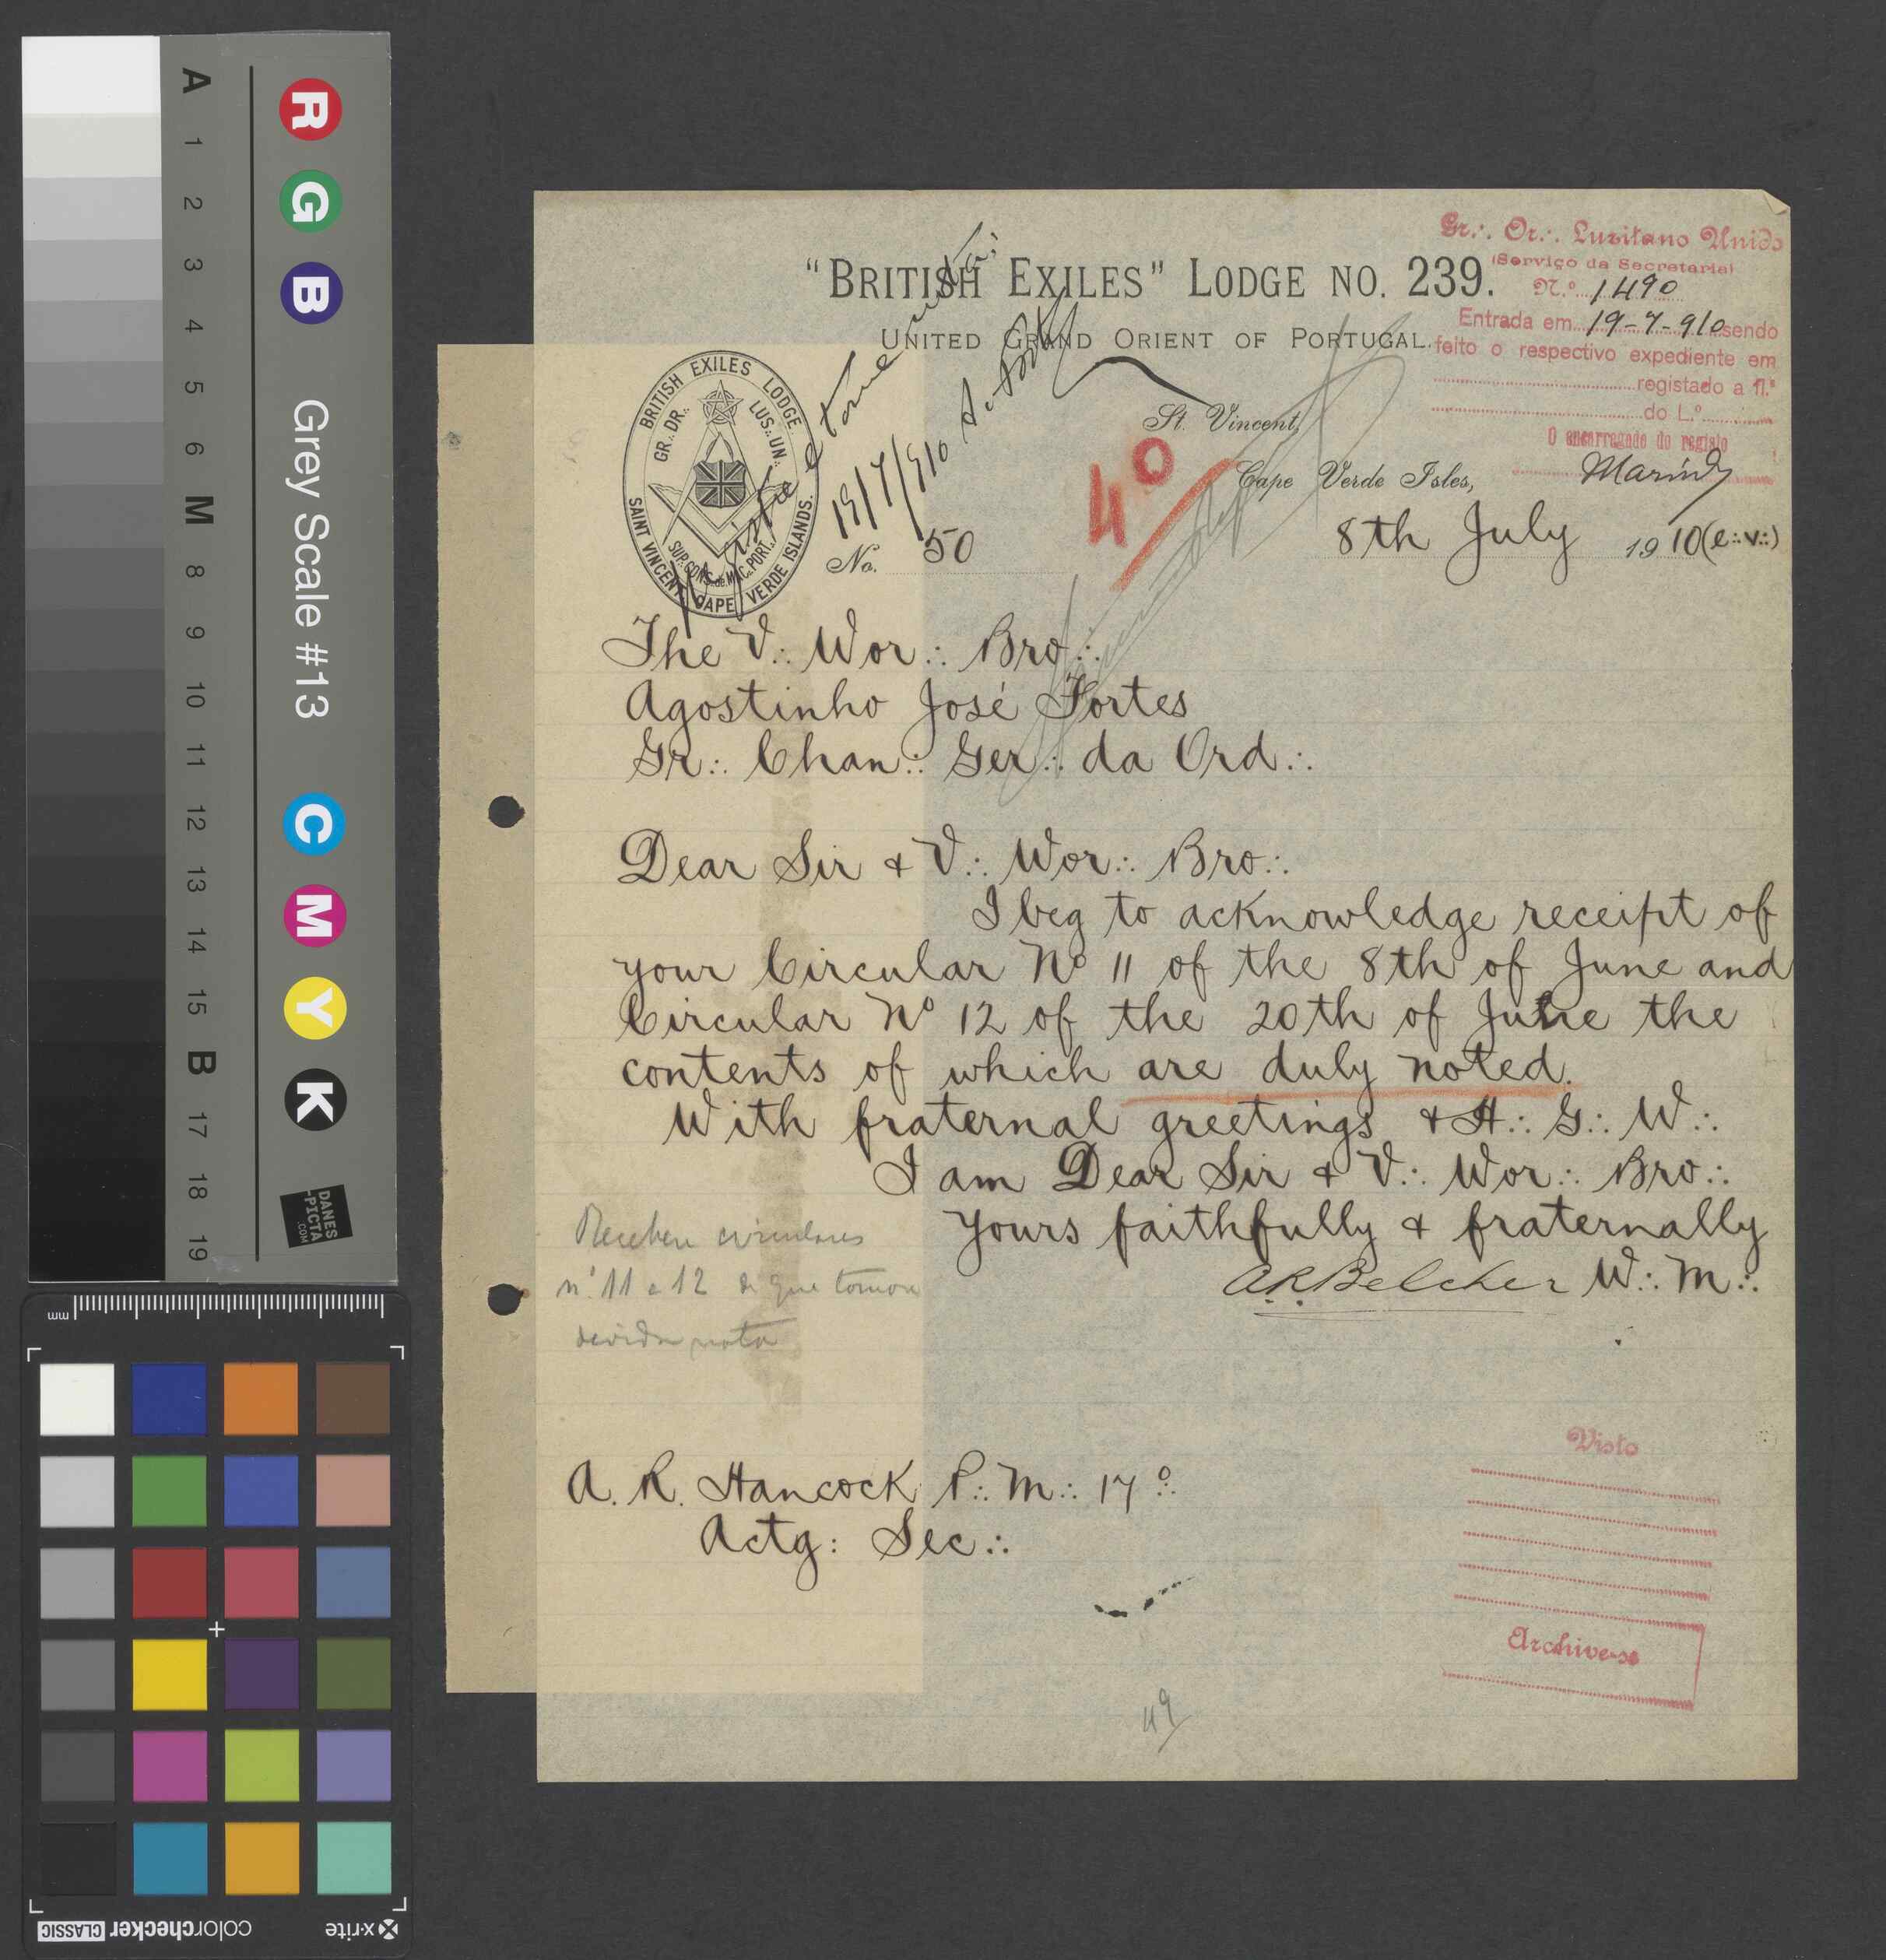 "BRITISH EXILES" LODGE NO. 239.
UNITED GRAND ORIENT OF PORTUGAL.
Gr∴ Or∴ Luzitano Unido
(Serviço da Secretaria)
N.º 1490
Entrada em 19-7-910 sendo
feito o respectivo expediente em
registado a fl.ˢ
do L.º
O encarregado do registo
BRITISH EXILES LODGE.
GR∴ OR∴ LUS∴ UN∴
SUP∴ CONS∴ de MAC∴ PORT∴
SAINT VINCENT, CAPE VERDE ISLANDS.
Registe e tome nota:
19/7/910
St. Vincent,
Cape Verde Isles,
4º
No. 50
8th July 1910 (e∴v∴)
The V∴ Wor∴ Bro∴
Agostinho José Fortes
Gr∴ Chan∴ Ger∴ da Ord∴
Dear Sir & V∴ Wor∴ Bro∴
I beg to acknowledge receipt of
your Circular Nº 11 of the 8th of June and
Circular Nº 12 of the 20th of June the
contents of which are duly noted.
With fraternal greetings & H∴ G∴ W∴
I am Dear Sir & V∴ Wor∴ Bro∴
Yours faithfully & fraternally
A.R. Belcher W∴ M∴
Recebeu circulares
nº 11 e 12 de que tomou
devida nota
A. R. Hancock P∴ M∴ 17º∴
Actg: Sec∴
Visto
Archive-se
49
A 1 2 3 4 5 6 M 8 9 10 11 12 13 14 15 B 17 18 19
R G B Grey Scale #13 C M Y K
DANES
-PICTA
.COM
mm
x-rite colorchecker CLASSIC